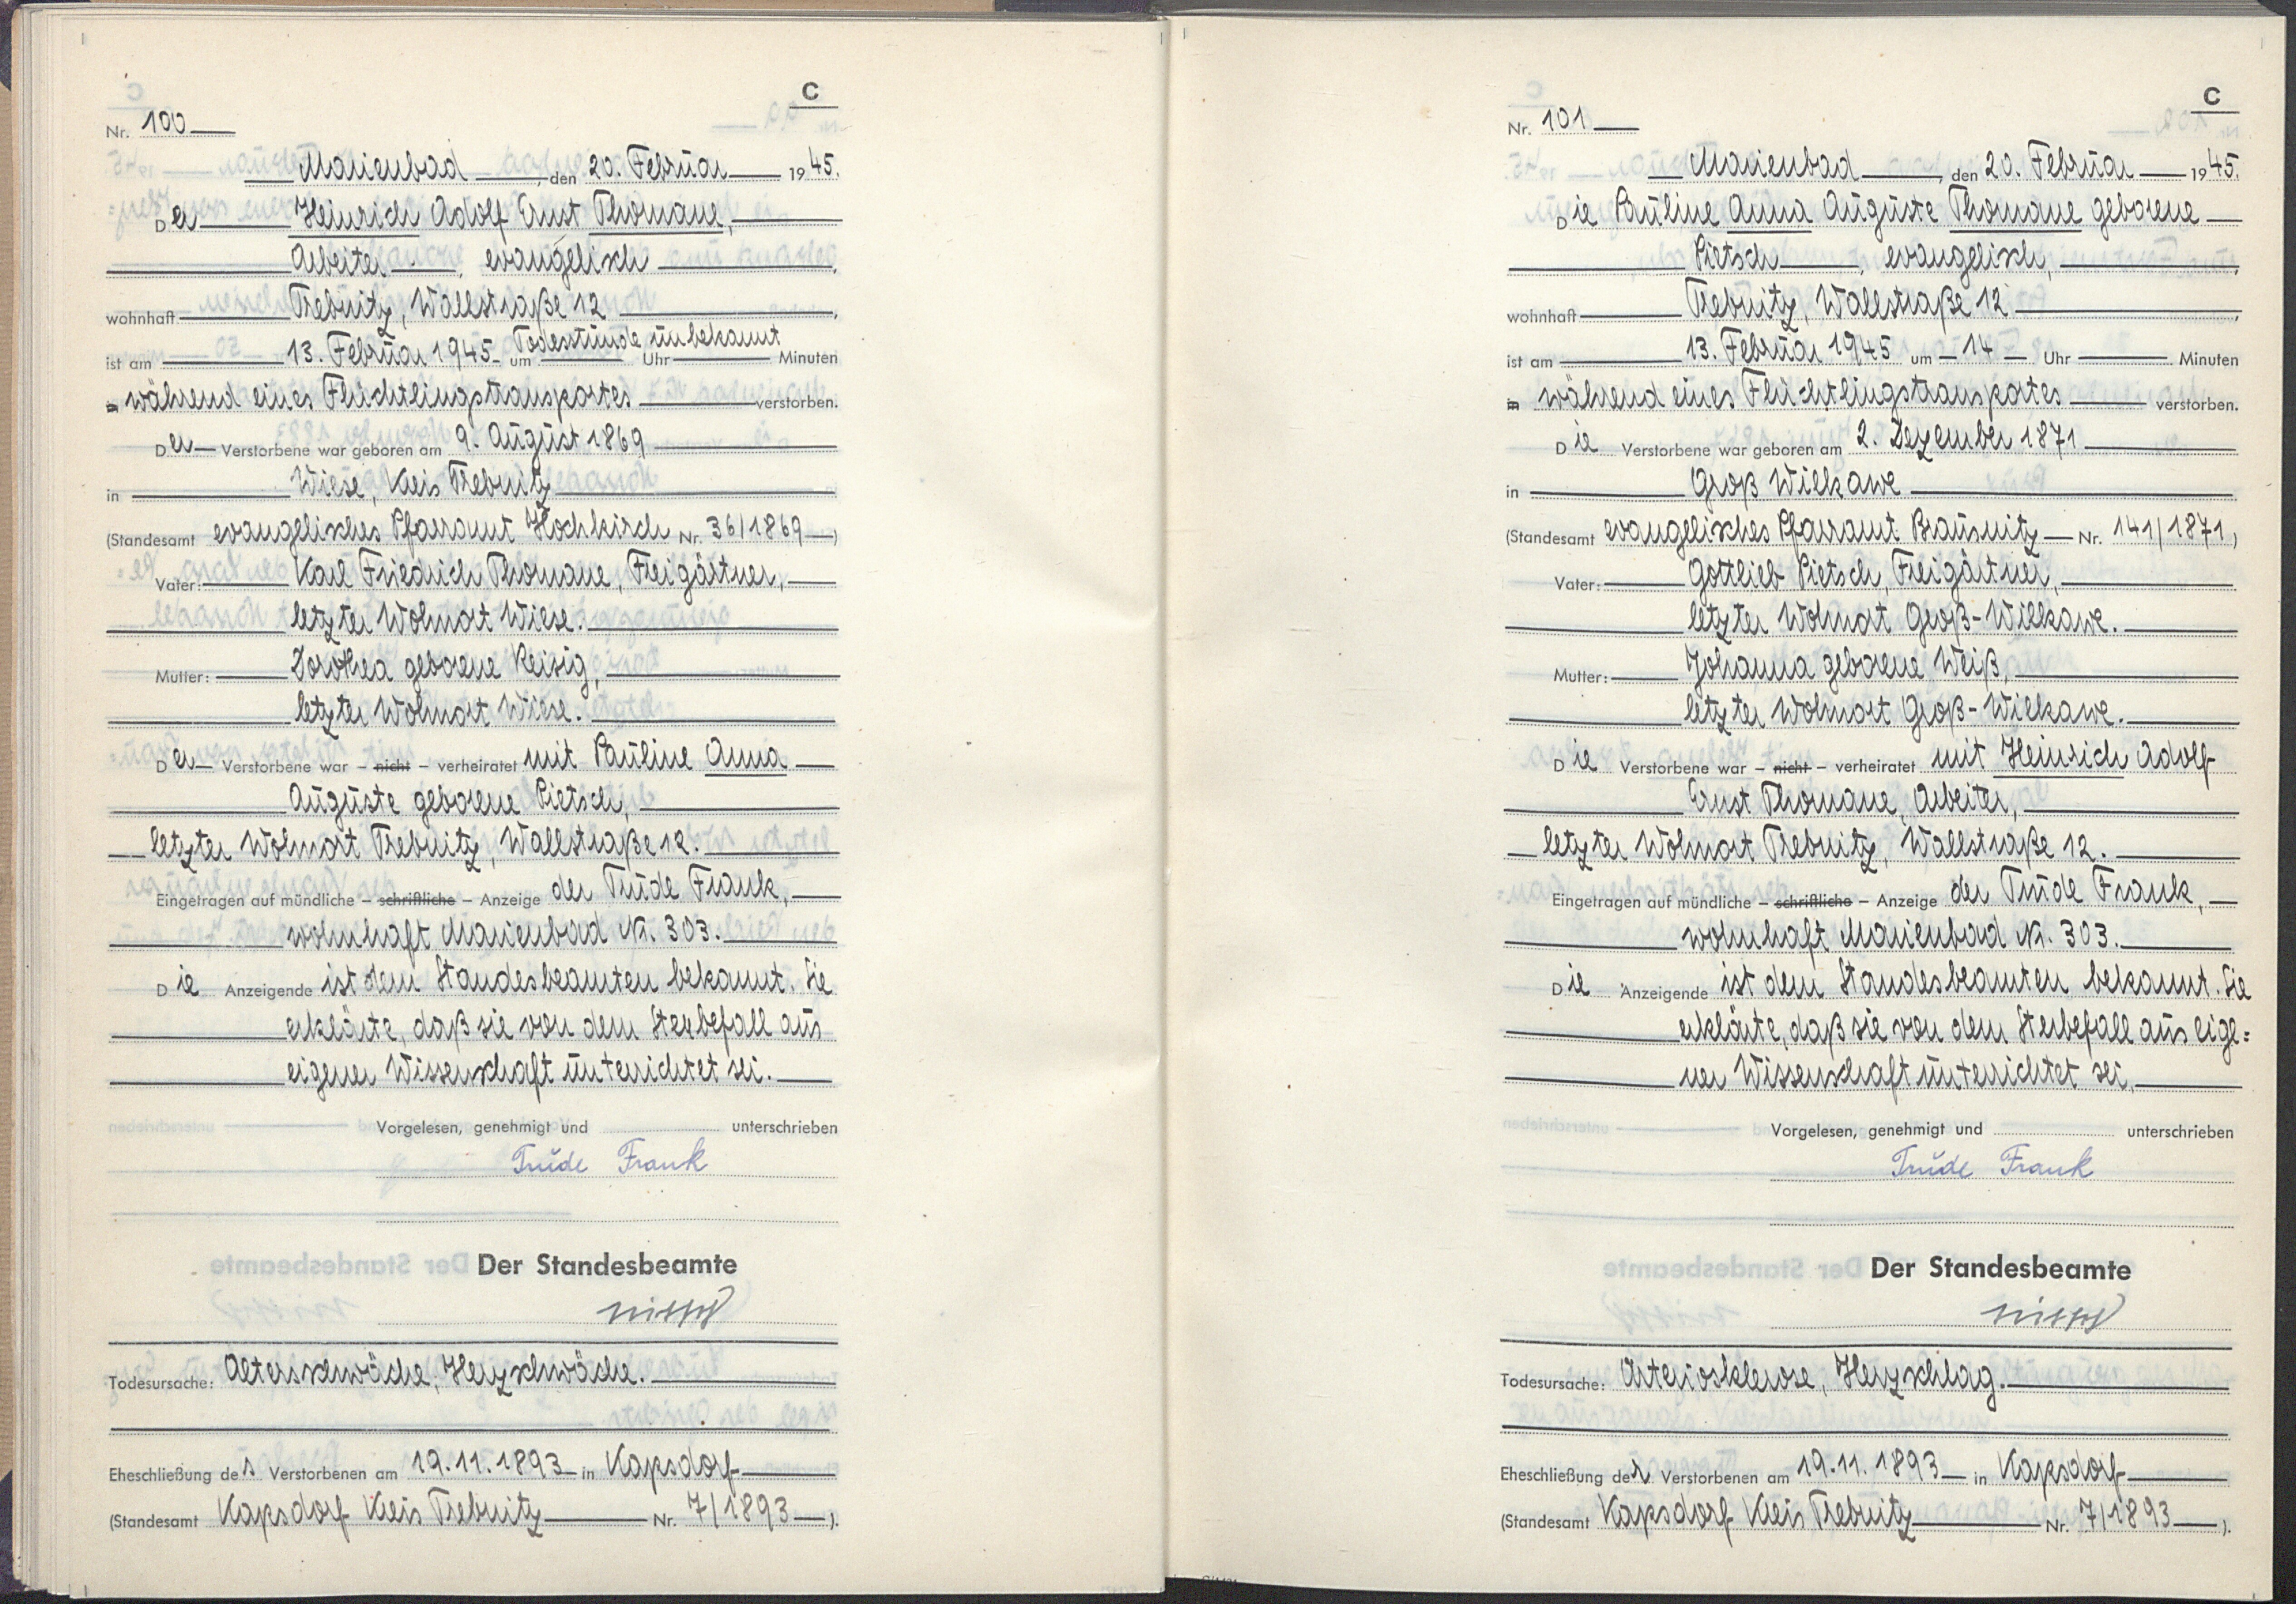 C
Nr. 100
Marienbad, den 20. Februar 1945.
Der Heinrich Adolf Ernst Thomane,
Arbeiter, evangelisch,
wohnhaft Trebnitz, Wallstraße 12,
ist am 13. Februar 1945 um Todesstunde unbekannt Uhr Minuten
in während eines Flüchtlingstransportes verstorben.
Der Verstorbene war geboren am 9. August 1869
in Wiese, Kreis Trebnitz
(Standesamt evangelisches Pfarramt Hochkirch Nr. 36/1869)
Vater: Karl Friedrich Thomane, Freigärtner,
letzter Wohnort Wiese.
Mutter: Dorothea geborene Reisig,
letzter Wohnort Wiese.
Der Verstorbene war – nicht – verheiratet mit Pauline Anna
Auguste geborene Pietsch,
letzter Wohnort Trebnitz, Wallstraße 12.
Eingetragen auf mündliche – schriftliche – Anzeige der Trude Frank,
wohnhaft Marienbad Nr. 303.
Die Anzeigende ist dem Standesbeamten bekannt. Sie
erklärte, daß sie von dem Sterbefall aus
eigener Wissenschaft unterrichtet sei.
Vorgelesen, genehmigt und unterschrieben
Trude Frank
Der Standesbeamte
Todesursache: Altersschwäche, Herzschwäche.
Eheschließung des Verstorbenen am 19.11.1893 in Kapsdorf
(Standesamt Kapsdorf Kreis Trebnitz Nr. 7/1893).
C
Nr. 101
Marienbad, den 20. Februar 1945.
Die Pauline Anna Auguste Thomane geborene
Pietsch, evangelisch,
wohnhaft Trebnitz, Wallstraße 12,
ist am 13. Februar 1945 um 14 Uhr Minuten
in während eines Flüchtlingstransportes verstorben.
Die Verstorbene war geboren am 2. Dezember 1871
in Groß Wilkawe
(Standesamt evangelisches Pfarramt Prausnitz Nr. 141/1871)
Vater: Gottlieb Pietsch, Freigärtner,
letzter Wohnort Groß-Wilkawe.
Mutter: Johanna geborene Weiß,
letzter Wohnort Groß-Wilkawe.
Die Verstorbene war – nicht – verheiratet mit Heinrich Adolf
Ernst Thomane, Arbeiter,
letzter Wohnort Trebnitz, Wallstraße 12.
Eingetragen auf mündliche – schriftliche – Anzeige der Trude Frank,
wohnhaft Marienbad Nr. 303.
Die Anzeigende ist dem Standesbeamten bekannt. Sie
erklärte, daß sie von dem Sterbefall aus eige=
ner Wissenschaft unterrichtet sei.
Vorgelesen, genehmigt und unterschrieben
Trude Frank
Der Standesbeamte
Todesursache: Arteriosklerose, Herzschlag.
Eheschließung der Verstorbenen am 19.11.1893 in Kapsdorf
(Standesamt Kapsdorf Kreis Trebnitz Nr. 7/1893).